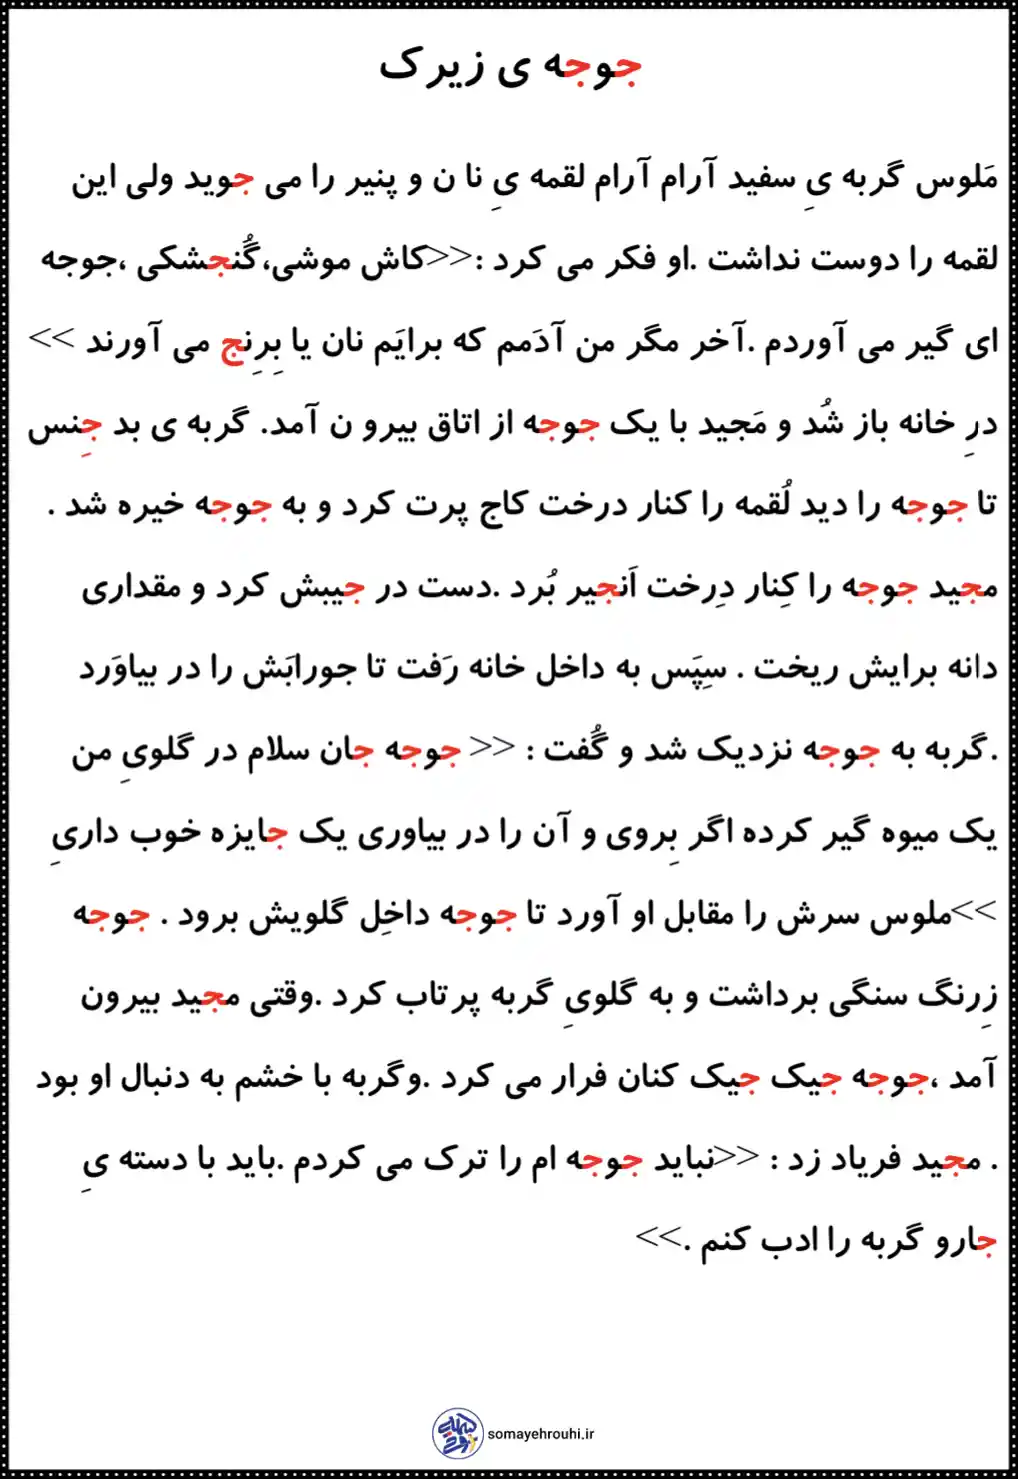 جوجه ی زیرک
مَلوس گربه یِ سفید آرام آرام لقمه یِ نا ن و پنیر را می جوید ولی این
لقمه را دوست نداشت .او فکر می کرد :<<کاش موشی،گُنجشکی ،جوجه
ای گیر می آوردم .آخر مگر من آدَمم که برایَم نان یا بِرِنج می آورند >>
درِ خانه باز شُد و مَجید با یک جوجه از اتاق بیرو ن آمد. گربه ی بد جِنس
تا جوجه را دید لُقمه را کنار درخت کاج پرت کرد و به جوجه خیره شد .
مجید جوجه را کِنار دِرخت اَنجیر بُرد .دست در جیبش کرد و مقداری
دانه برایش ریخت . سِپَس به داخل خانه رَفت تا جورابَش را در بیاوَرد
.گربه به جوجه نزدیک شد و گُفت : << جوجه جان سلام در گلویِ من
یک میوه گیر کرده اگر بِروی و آن را در بیاوری یک جایزه خوب داریِ
>>ملوس سرش را مقابل او آورد تا جوجه داخِل گلویش برود . جوجه
زِرنگ سنگی برداشت و به گلویِ گربه پرتاب کرد .وقتی مجید بیرون
آمد ،جوجه جیک جیک کنان فرار می کرد .وگربه با خشم به دنبال او بود
. مجید فریاد زد : <<نباید جوجه ام را ترک می کردم .باید با دسته یِ
جارو گربه را ادب کنم .>>
somayehrouhi.ir